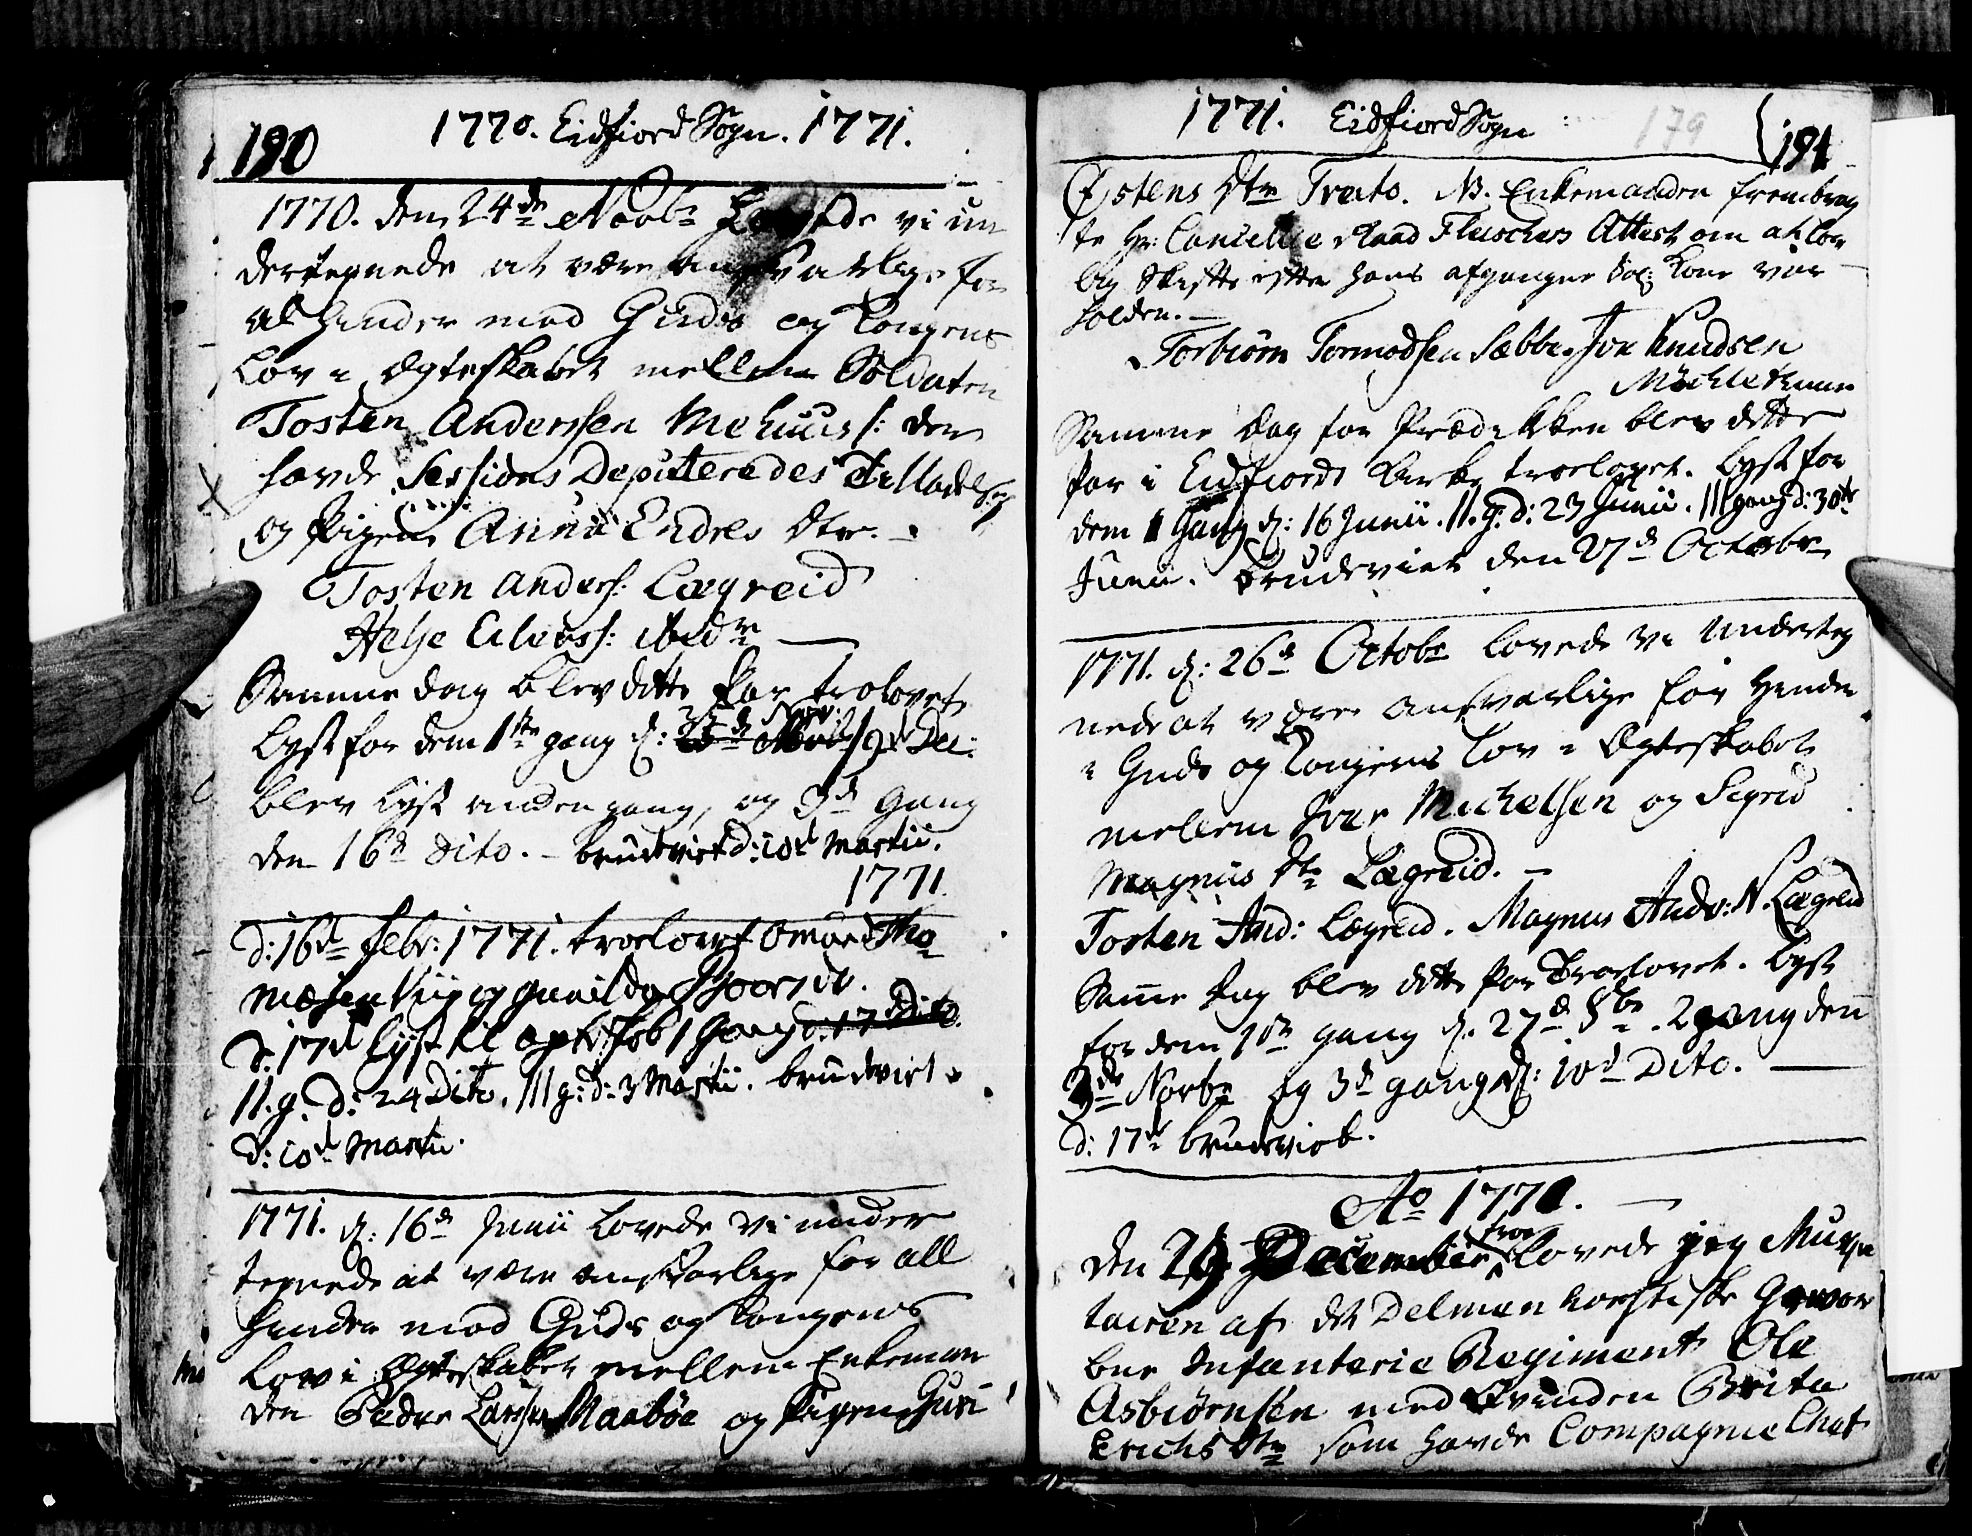 190
1770. Eidfiord Sogn. 1771.
1770. den 24de Novbr lovede vi un
dertegnede at være ansvarlige for
al hinder mod Guds og Kongens
Lov i Ægteskabet mellem Soldaten
Tosten Anderssen Mehuus /: der
havde Sessions Deputeredes
og Pigen Anna Endres dtr. -
Tosten Anders: Lægreid
Helje Eilerss: ibidm
Samme dag blev dette Par trolovet
Lyst for dem 1ste gang d: 25de Nov. 9de Dec:
blev lyst anden gang, og 3de Gang
den 16de dito. - brudeviet d: 10de Martii.
1771
d: 16de Febr: 1771. troelovet Omund Tho
mæsen og Gunilda
d. 17de lyst til ægteskab 1 Gang d. 17 Dito.
II. g. d: 24 Dito, III g: d: 3 Martii. brudeviet
d: 10de Martii.
1771. d: 16de Junii lovede Vi under
tegnede at være ansvarlige for all
hinder mod Guds og Kongens
Lov i Ægteskabet mellem Enkeman
den Peder Larsen Maabøe og Pigen Guri
1771. Eidfiord Sogn
179
191
Østens dtr Træto. NB. Enkemanden frembrag
te Hr: Cancellie Raad Fleischers Attest om at lov
lig Skifte efter hans afgangne Sal: Kone var
holden. -
Torbiørn Tormodsen Sæbbe. Jon Knudsen
Møchletuun
Samme dag for Prædikken blev dette
Par i Eidfiord Kirke troelovet. Lyst for
dem 1 Gang d: 16 Junii. II. g. d: 23 Junii. III gang d: 30te
Junii. Brudeviet den 27de Octobr
1771. d: 26de Octobr lovede vi underteg
nede at være ansvarlige for hinder
i Guds og Kongens Lov i Ægteskabet
mellem Iver Michelsen og Sigrid
Magnus dtr Lægreid. -
Tosten And: Lægreid. Magnus Andr: N. Lægreid
Samme dag blev dette Par Troelovet. Lyst
for dem 1ste gang d. 27de 8br. 2 gang den
3de Novbr og 3de gang d: 10de Dito.
d: 17de brudeviet.
Ao 1770.
Den 26 December troe lovede jeg Musqve
tairen af det Delmenhorstiske Gevor
bne Infanterie Regiment Ole
Asbiørnsen med Qvinden Brita
Erichs dtr som havde Compagnie Chef